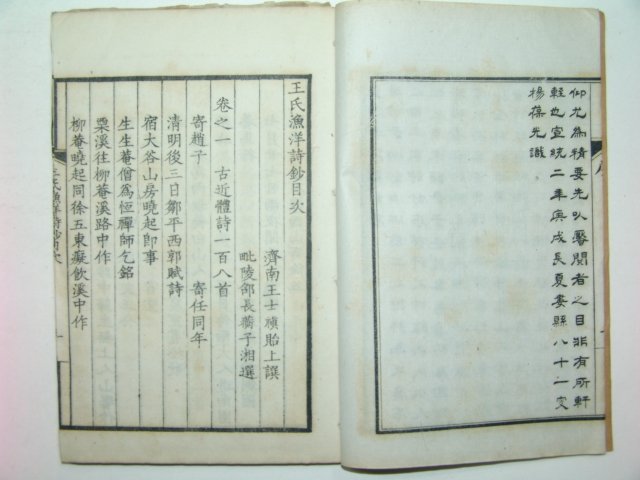 仰尤為精要先以饜閱者之目非有所軒
輊也宣統二年庚戌長夏婁縣八十一叟
楊葆光識
王氏漁洋詩鈔目次
濟南王士禎貽上譔
毗陵邵長蘅子湘選
卷之一 古近體詩一百八首
寄趙子 寄任同年
清明後三日鄒平西郭賦詩
宿大谷山房曉起即事
生生菴僧為恒禪師乞銘
栗溪往柳菴溪路中作
柳菴曉起同徐五東癡飲溪中作
王氏漁洋詩鈔目次